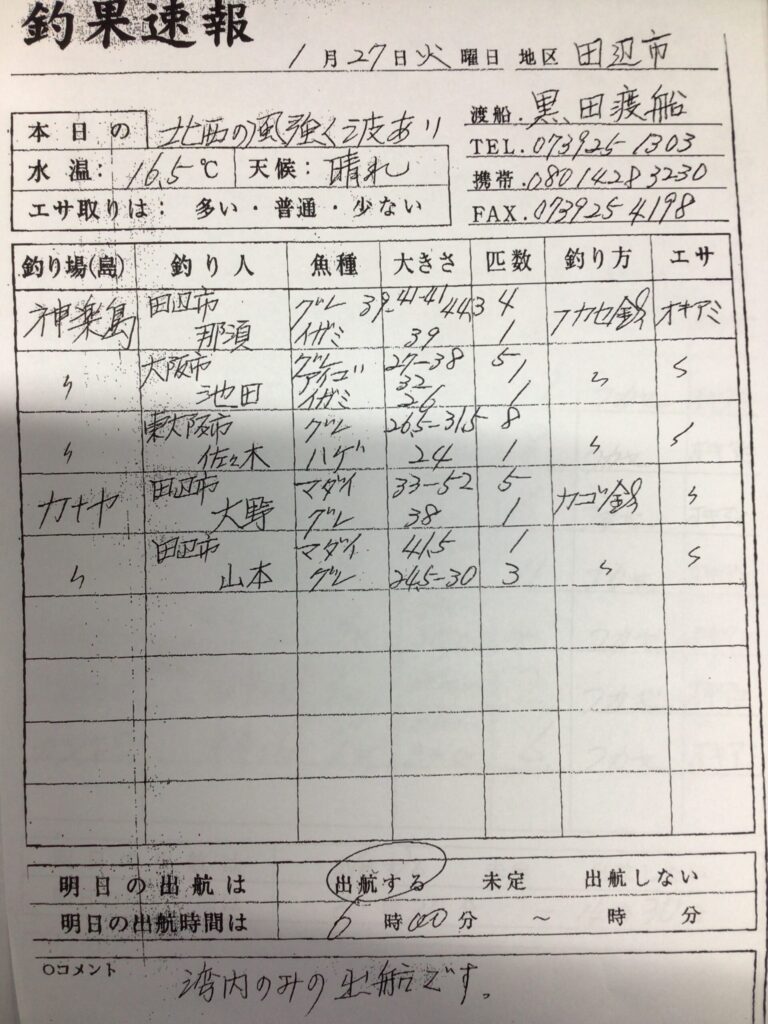 釣果速報
1月27日火曜日 地区 田辺市
渡船.黒田渡船
本日の 北西の風強く波あり
TEL.073925 1303
水温: 16.5℃ 天候: 晴れ
携帯.08014283230
エサ取りは: 多い・普通・少ない
FAX.073925 4198
釣り場(島) 釣り人 魚種 大きさ 匹数 釣り方 エサ
神楽島 田辺市 グレ 39-41-41 44,3 4 フカセ釣 オキアミ
那須 イガミ 39 1
〃 大阪市 グレ 27-38 5 〃 〃
アイゴ 32 1
池田 イガミ 26 1
〃 東大阪市 グレ 26.5-31.5 8 〃 〃
佐々木 ハゲ 24 1
カナヤ 田辺市 マダイ 33-52 5 カゴ釣 〃
大野 グレ 38 1
〃 田辺市 マダイ 41.5 1 〃 〃
山本 グレ 24.5-30 3
明日の出航は 出航する 未定 出航しない
明日の出航時間は 6時00分 ~ 時 分
○コメント
湾内のみの出航です。